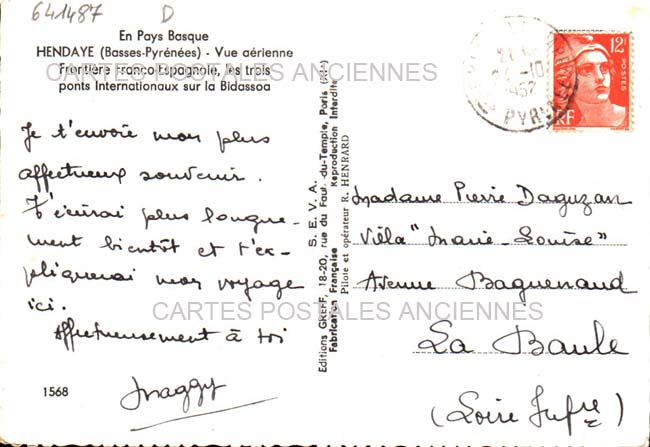 641487 D
En Pays Basque
HENDAYE (Basses-Pyrénées) - Vue aérienne
Frontière Franco-Espagnole, les trois
ponts Internationaux sur la Bidassoa
CARTES POSTALES ANCIENNES
Je t'envoie mon plus
affectueux souvenir.
T'écrirai plus longue-
ment bientôt et t'ex-
pliquerai mon voyage
ici.
Affectueusement à toi
Maggy
1568
CARTES POSTALES ANCIENNES
Editions GREFF, 18-20, rue du Faub.-du-Temple, Paris (XIe)
S. E. V. A.
Fabrication Française Reproduction Interdite
Pilote et opérateur R. HENRARD
1952
PYR
12F
POSTES
RF
Madame Pierre Daguzan
Villa "Marie-Louise"
Avenue Baguenaud
La Baule
(Loire Infre)